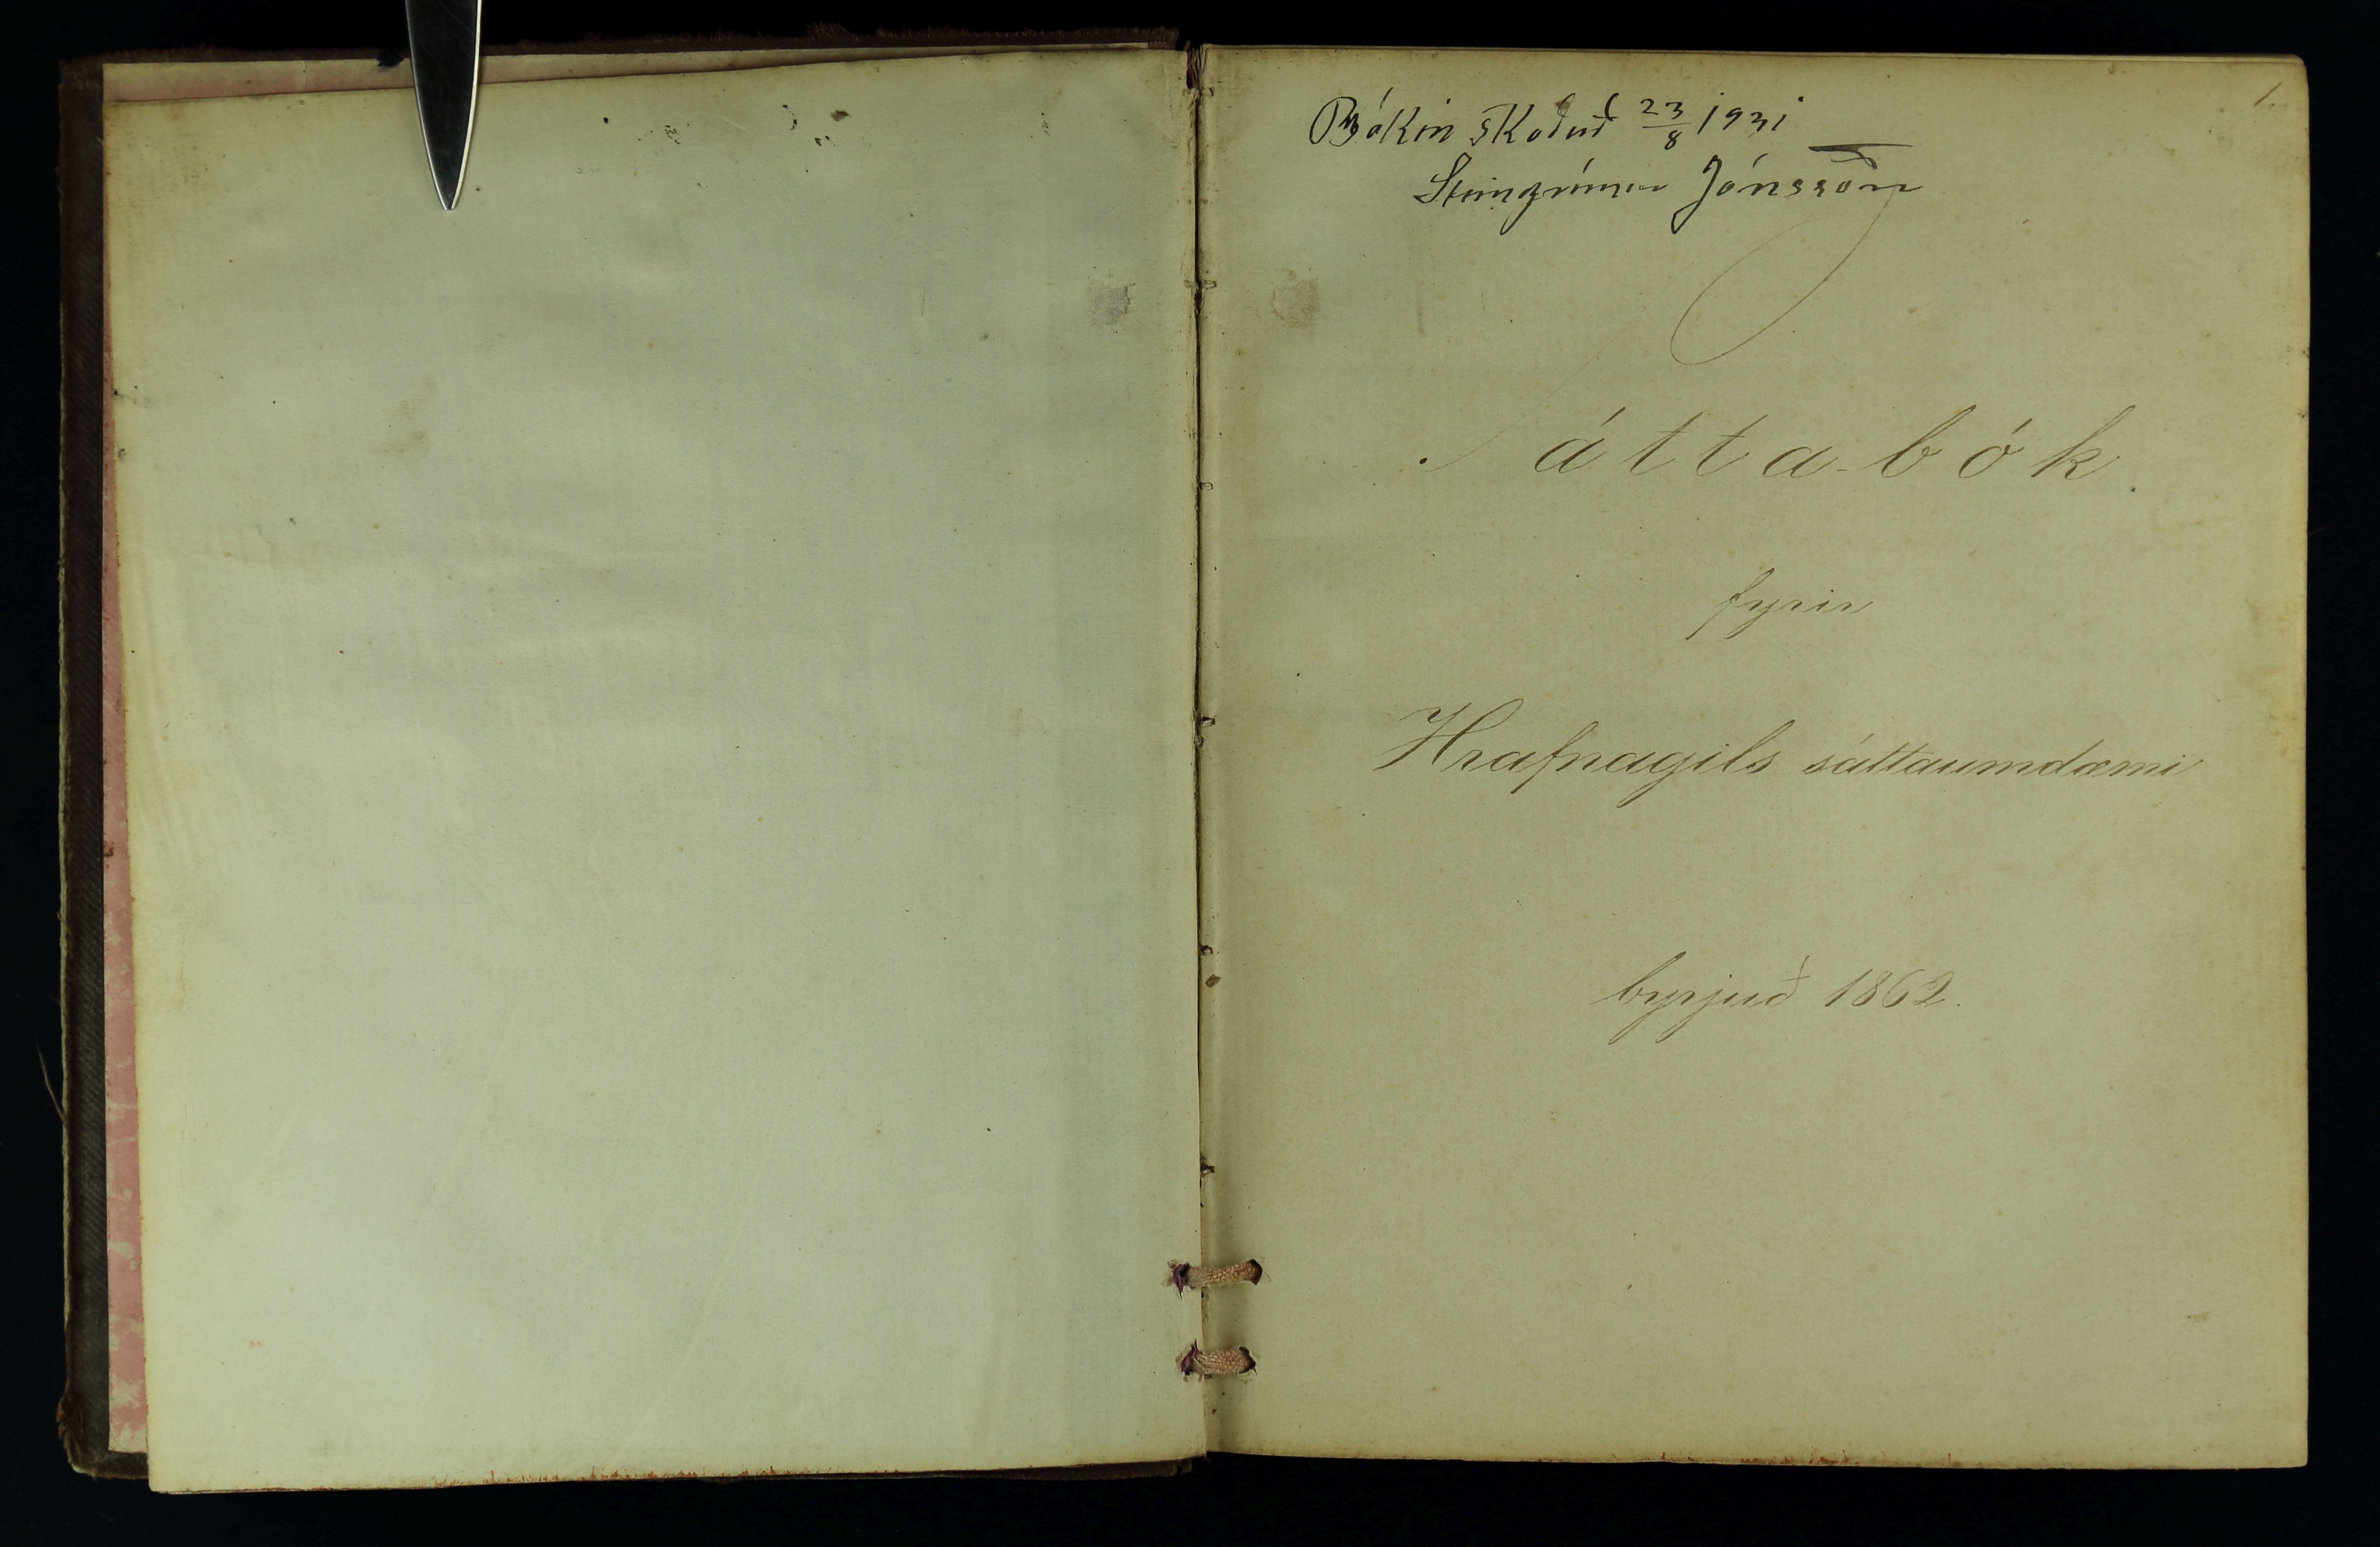 1.
Bókin skoðuð 23/8 1931
Steingrímur Jónsson
Sátta-bók.
fyrir
Hrafnagils sáttaumdæmi
byrjuð 1862.